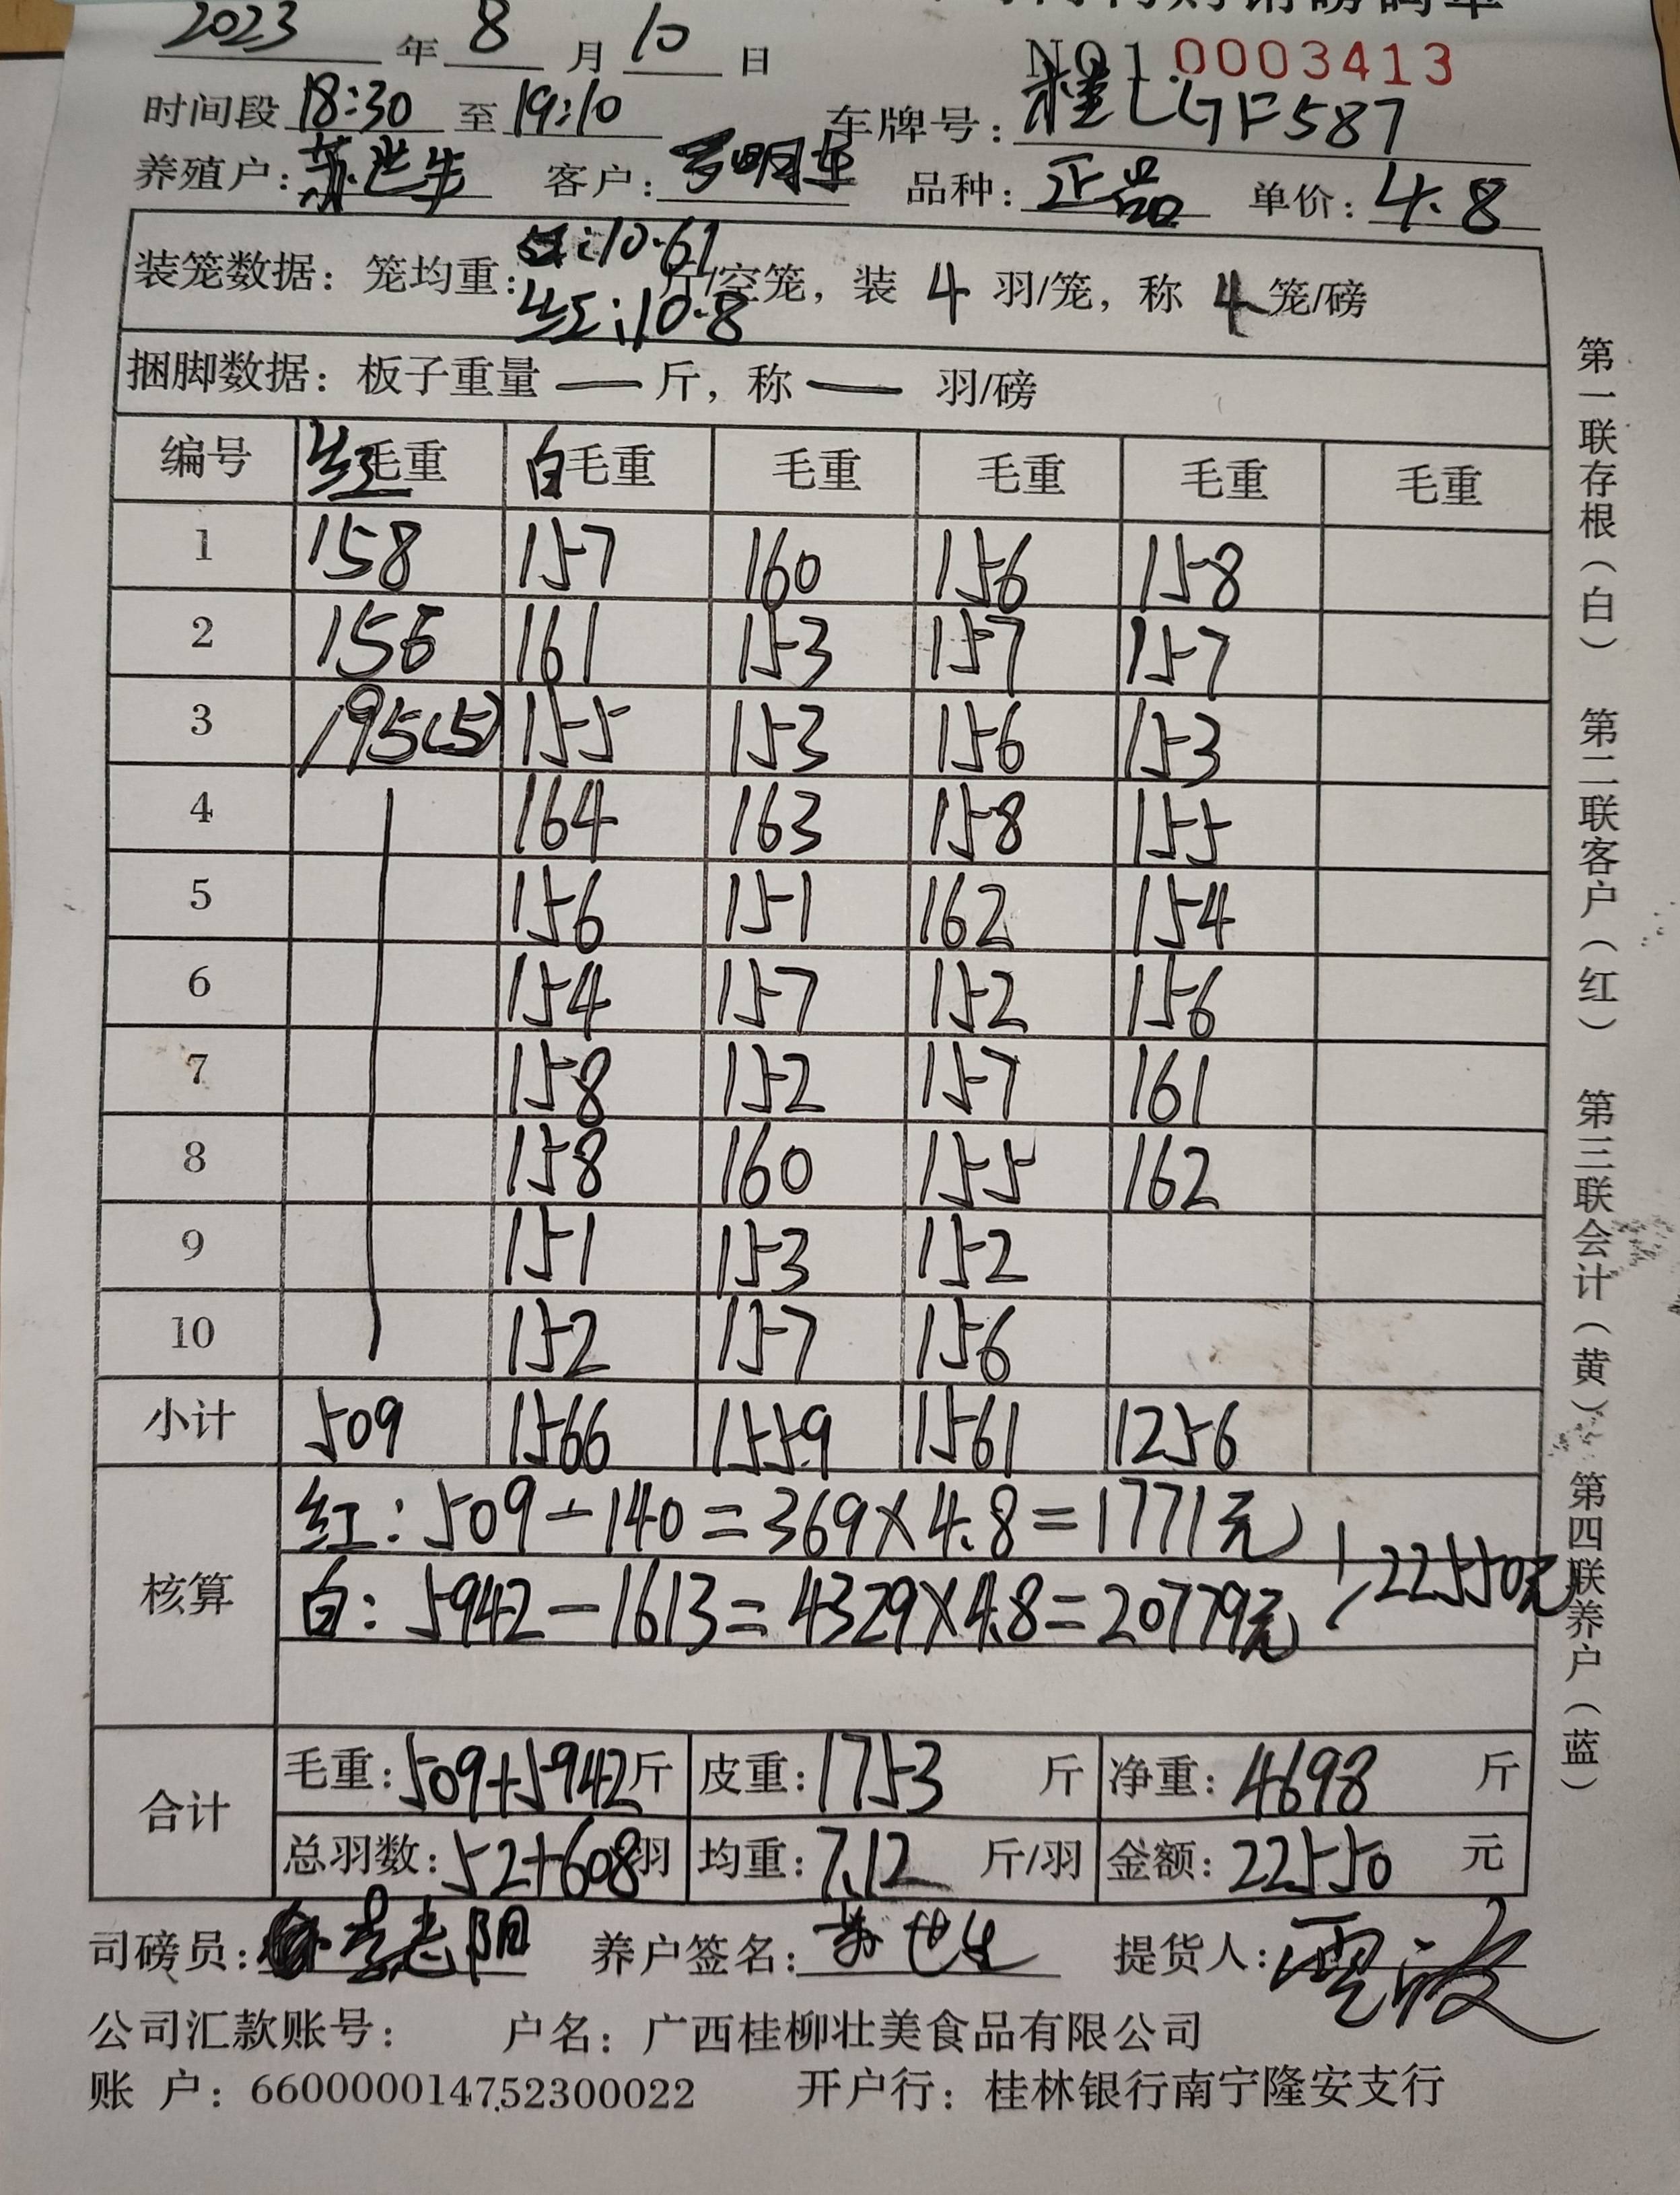 2023 年 8 月 10 日
NO 1 0003413
时间段 18:30 至 19:10 车牌号: 桂LGF587
养殖户: 苏世生 客户: 罗明 品种: 正品 单价: 4.8
装笼数据: 笼均重: 白:10.61 红:10.8 斤/空笼, 装 4 羽/笼, 称 4 笼/磅
捆脚数据: 板子重量 — 斤, 称 — 羽/磅
编号 红毛重 白毛重 毛重 毛重 毛重 毛重
1 158 157 160 156 158
2 156 161 153 157 157
3 195(5) 155 153 156 153
4 164 163 158 155
5 156 151 162 154
6 154 157 152 156
7 158 152 157 161
8 158 160 155 162
9 151 153 152
10 152 157 156
小计 509 1566 1559 1561 1256
核算
红: 509-140=369×4.8=1771元
白: 5942-1613=4329×4.8=20779元
22550元
合计
毛重: 509+5942斤 皮重: 1753 斤 净重: 4698 斤
总羽数: 52+608羽 均重: 7.12 斤/羽 金额: 22550 元
司磅员: 志阳 养户签名: 苏世生 提货人:
公司汇款账号: 户名: 广西桂柳壮美食品有限公司
账 户: 660000014752300022 开户行: 桂林银行南宁隆安支行
第一联存根(白) 第二联客户(红) 第三联会计(黄) 第四联养户(蓝)